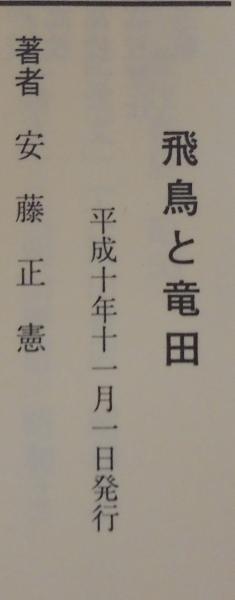 飛鳥と竜田
平成十年十一月一日発行
著者 安藤正憲